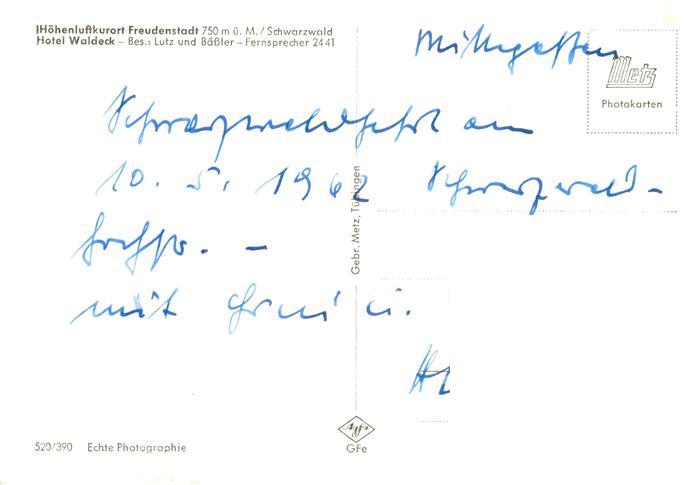 Höhenluftkurort Freudenstadt 750 m ü. M. / Schwarzwald
Hotel Waldeck – Bes.: Lutz und Bäßler – Fernsprecher 2441
Metz
Photokarten
Schwarzwaldfahrt am
10. 5. 1962 Schwarzwald-
hochstr. –
mit
Gebr. Metz, Tübingen
520/390 Echte Photographie
Agfa
GFe